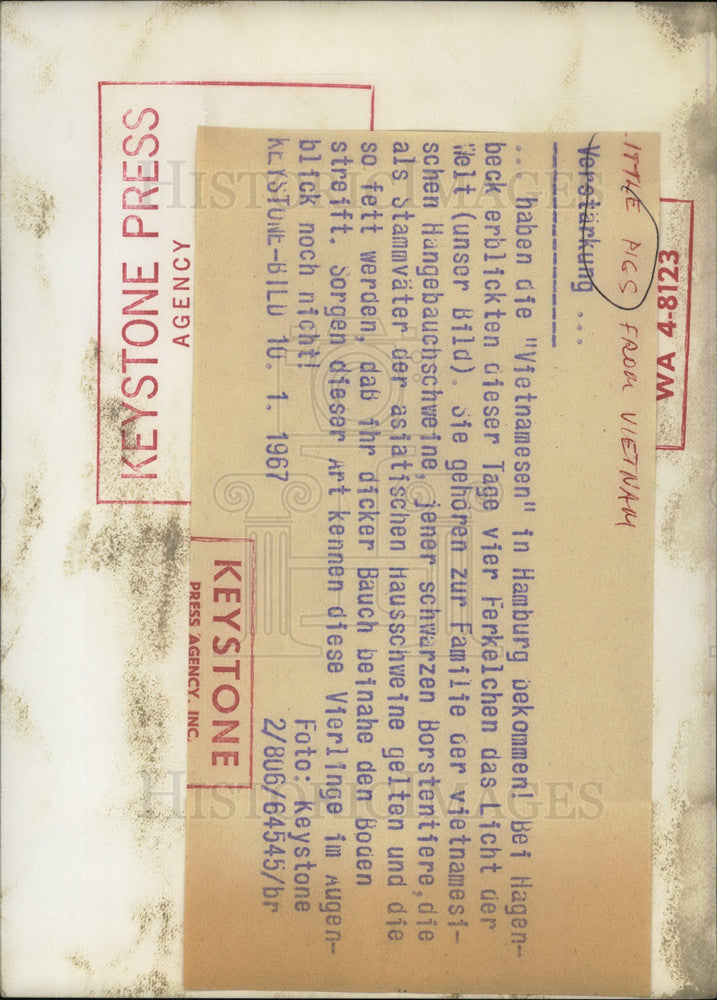 KEYSTONE PRESS
AGENCY
WA 4-8123
LITTLE PIGS FROM VIETNAM
Verstärkung ...
... haben die "Vietnamesen" in Hamburg bekommen! Bei Hagen-
beck erblickten dieser Tage vier Ferkelchen das Licht der
Welt (unser Bild). Sie gehören zur Familie der vietnamesi-
schen Hängebauchschweine, jener schwarzen Borstentiere, die
als Stammväter der asiatischen Hausschweine gelten und die
so fett werden, daß ihr dicker Bauch beinahe den Boden
streift. Sorgen dieser Art kennen diese Vierlinge im Augen-
blick noch nicht!
Foto: Keystone
KEYSTONE-BILD 10. 1. 1967
2/806/64545/br
KEYSTONE
PRESS AGENCY, INC.
HISTORIC IMAGES
HISTORIC IMAGES